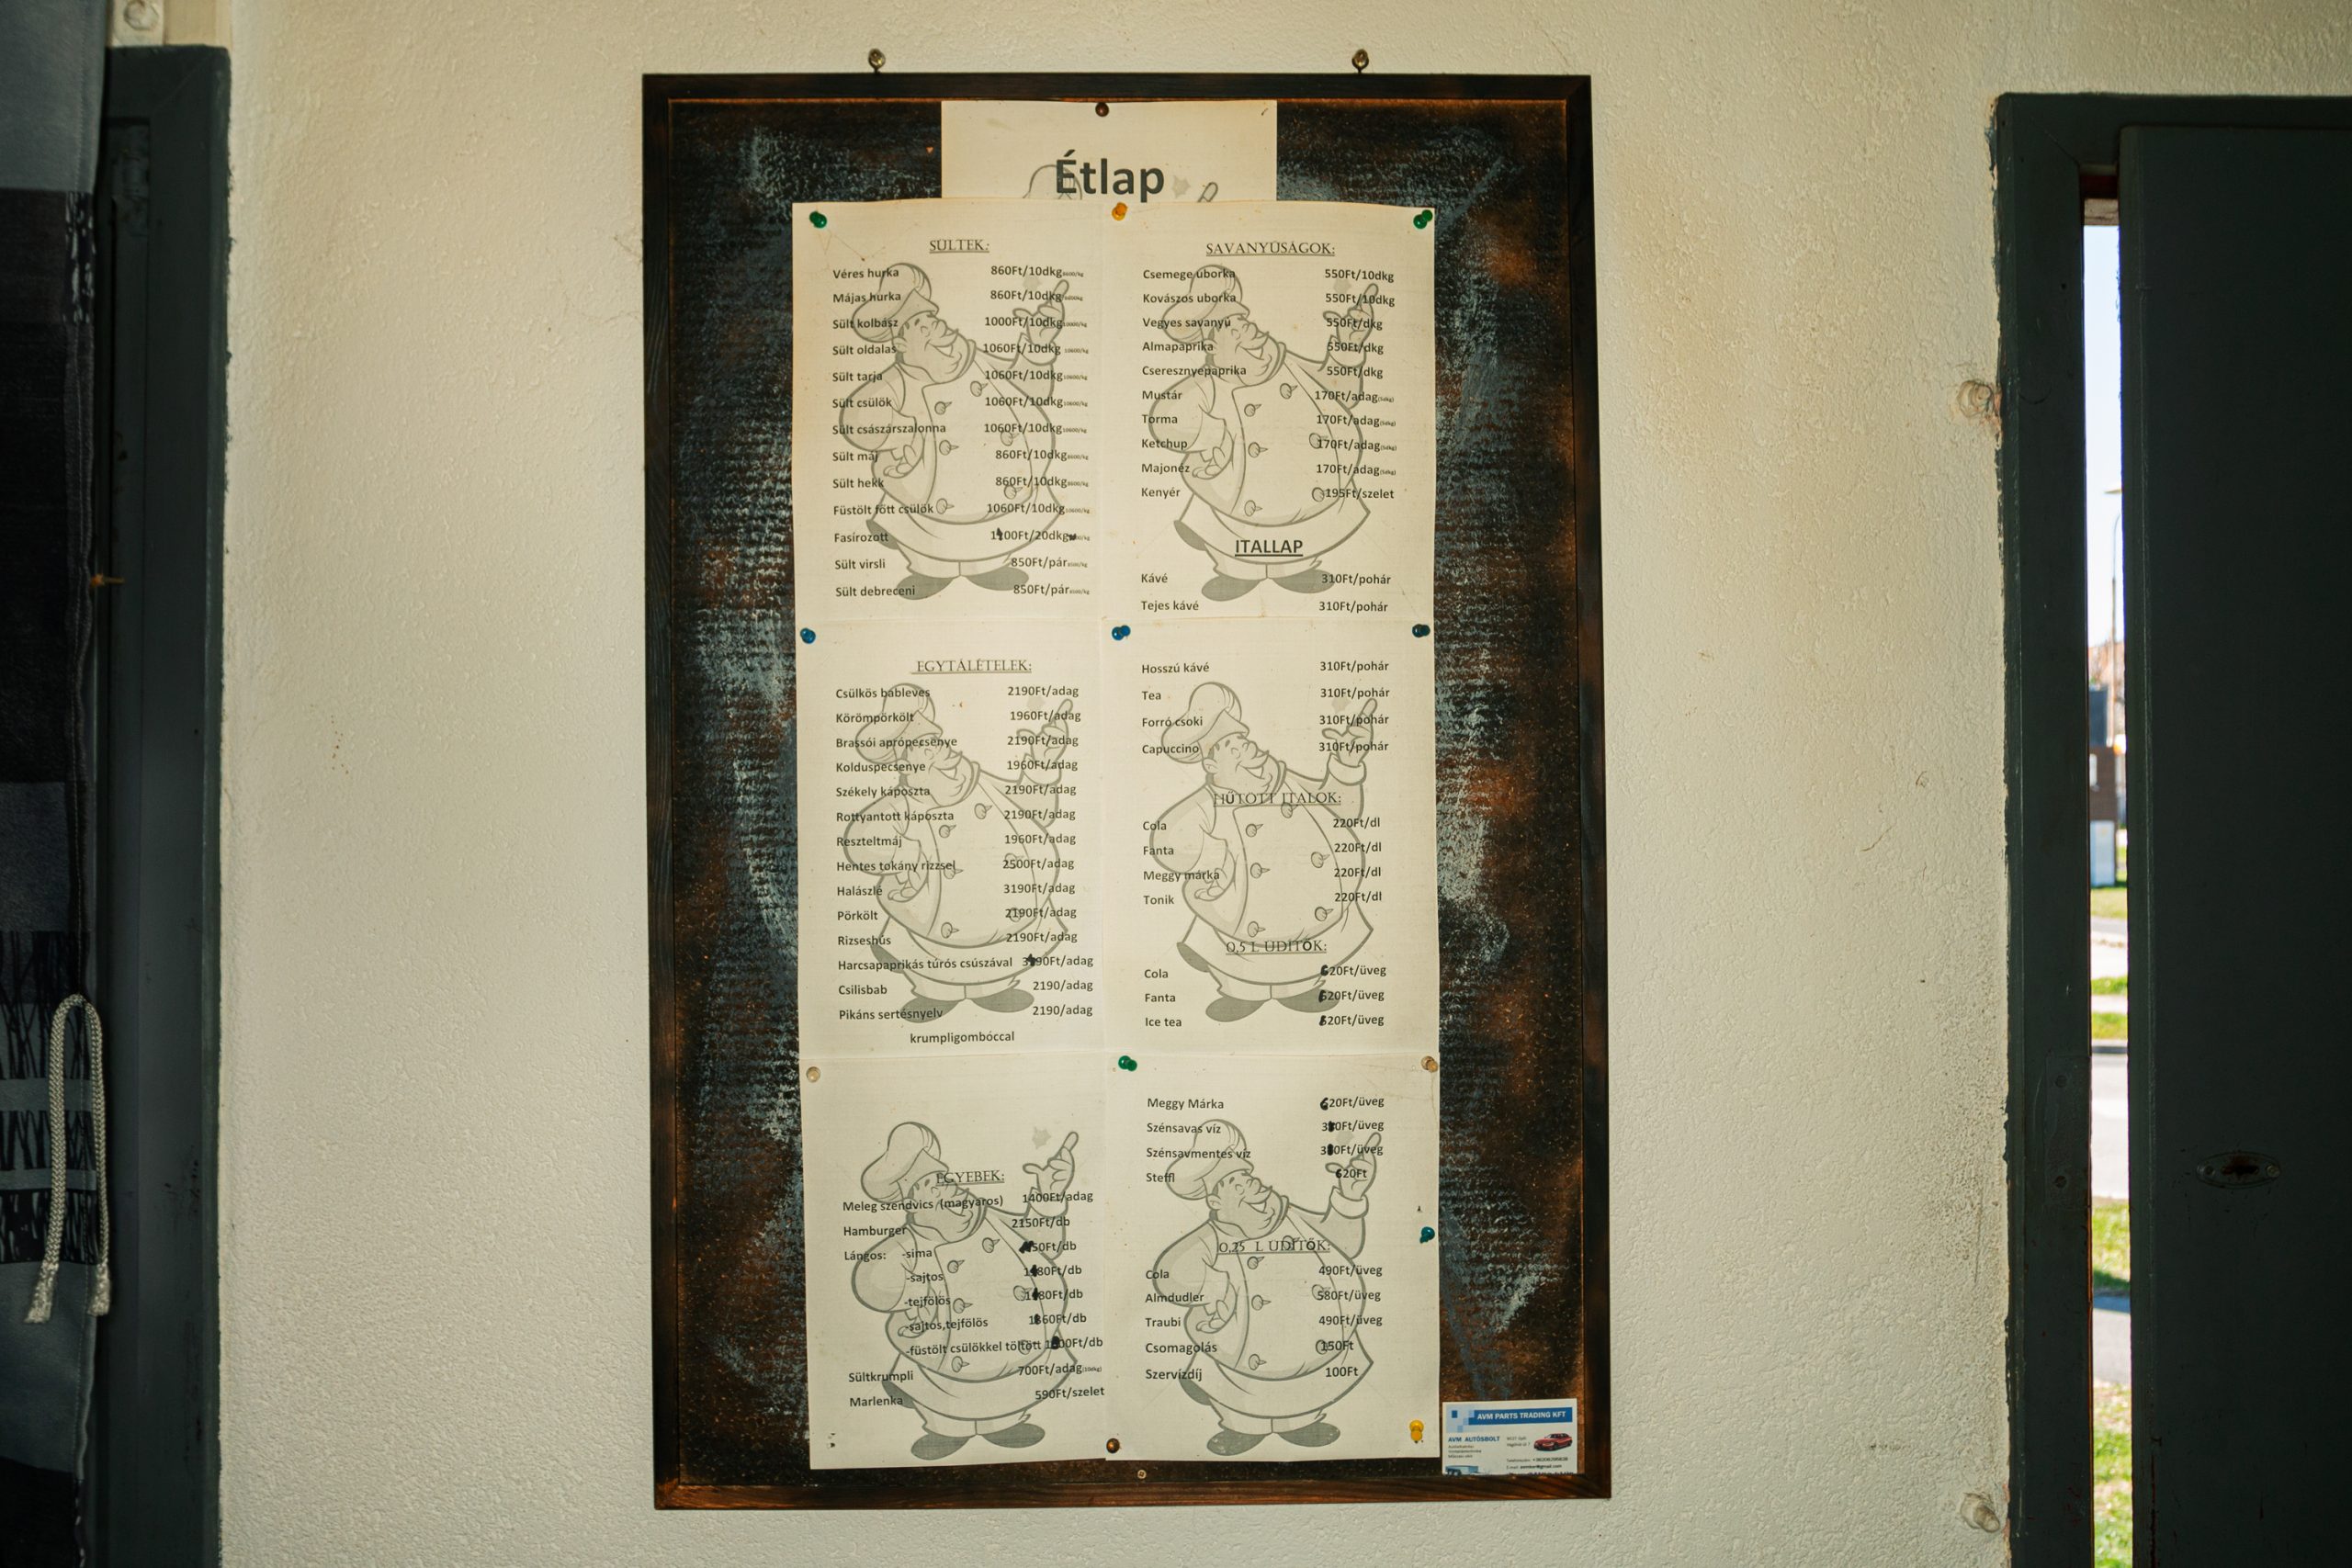 Étlap
SÜLTEK:
Véres hurka 860Ft/10dkg
Májas hurka 860Ft/10dkg
Sült kolbász 1000Ft/10dkg
Sült oldalas 1060Ft/10dkg
Sült tarja 1060Ft/10dkg
Sült csülök 1060Ft/10dkg
Sült császárszalonna 1060Ft/10dkg
Sült máj 860Ft/10dkg
Sült hekk 860Ft/10dkg
Füstölt főtt csülök 1060Ft/10dkg
Fasírozott
Sült virsli 850Ft/pár
Sült debreceni 850Ft/pár
SAVANYÚSÁGOK:
Csemege uborka 550Ft/10dkg
Kovászos uborka 550Ft/10dkg
Vegyes savanyú 550Ft/dkg
Almapaprika 550Ft/dkg
Cseresznyepaprika 550Ft/dkg
Mustár 170Ft/adag
Torma 170Ft/adag
Ketchup 170Ft/adag
Majonéz 170Ft/adag
Kenyér 195Ft/szelet
ITALLAP
Kávé 310Ft/pohár
Tejes kávé 310Ft/pohár
EGYTÁLÉTELEK:
Csülkös bableves 2190Ft/adag
Körömpörkölt 1960Ft/adag
Brassói aprópecsenye 2190Ft/adag
Kolduspecsenye 1960Ft/adag
Székely káposzta 2190Ft/adag
Rottyantott káposzta 2190Ft/adag
Reszteltmáj 1960Ft/adag
Hentes tokány rizzsel 2500Ft/adag
Halászlé 3190Ft/adag
Pörkölt 2190Ft/adag
Rizseshús 2190Ft/adag
Harcsapaprikás túrós csúszával
Csilisbab 2190/adag
Pikáns sertésnyelv 2190/adag
krumpligombóccal
Hosszú kávé 310Ft/pohár
Tea 310Ft/pohár
Forró csoki 310Ft/pohár
Capuccino 310Ft/pohár
HŰTÖTT ITALOK:
Cola 220Ft/dl
Fanta 220Ft/dl
Meggy márka 220Ft/dl
Tonik 220Ft/dl
0,5 L ÜDÍTŐK:
Cola 620Ft/üveg
Fanta 620Ft/üveg
Ice tea 620Ft/üveg
EGYEBEK:
Meleg szendvics (magyaros) 1400Ft/adag
Hamburger 2150Ft/db
Lángos: -sima
-sajtos
-tejfölös
-sajtos,tejfölös
-füstölt csülökkel töltött
Sültkrumpli 700Ft/adag
Marlenka 590Ft/szelet
Meggy Márka 620Ft/üveg
Szénsavas víz
Szénsavmentes víz
Steffl 620Ft
0,25 L ÜDÍTŐK:
Cola 490Ft/üveg
Almdudler 580Ft/üveg
Traubi 490Ft/üveg
Csomagolás 150Ft
Szervízdíj 100Ft
AVM PARTS TRADING KFT
AVM AUTÓSBOLT